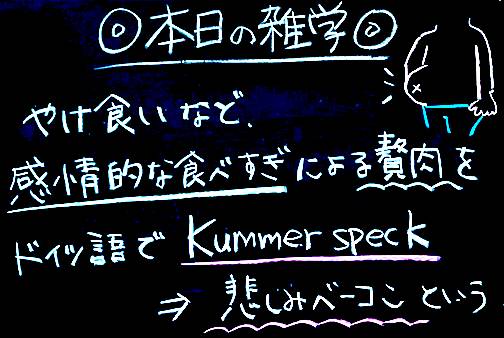 ◎本日の雑学◎
やけ食いなど、
感情的な食べすぎによる贅肉を
ドイツ語で Kummer speck
⇒ 悲しみベーコンという